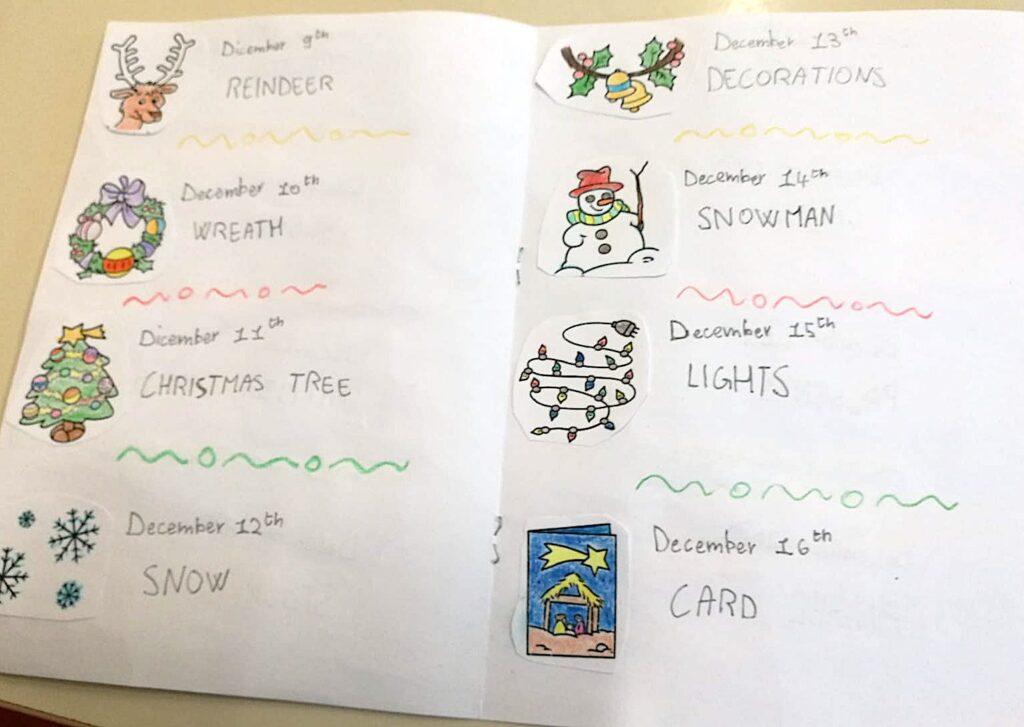 Dicember 9th
REINDEER
December 10th
WREATH
Dicember 11th
CHRISTMAS TREE
December 12th
SNOW
December 13th
DECORATIONS
December 14th
SNOWMAN
December 15th
LIGHTS
December 16th
CARD